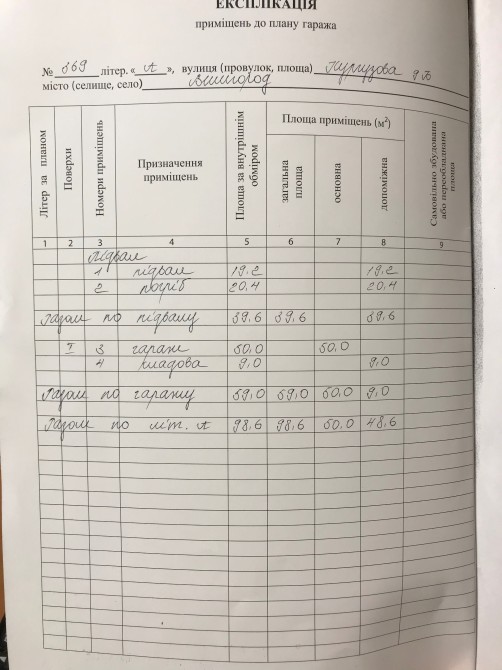 ЕКСПЛІКАЦІЯ
приміщень до плану гаража
№ 369 літер. « А », вулиця (провулок, площа) Кургузова 9 Б
місто (селище, село) Вишгород
Літер за планом
Поверхи
Номери приміщень
Призначення приміщень
Площа за внутрішнім обміром
Площа приміщень (м²)
загальна площа
основна
допоміжна
Самовільно збудована або переобладнана площа
1 2 3 4 5 6 7 8 9
Підвал
1 підвал 19,2 19,2
2 погріб 20,4 20,4
Разом по підвалу 39,6 39,6 39,6
I 3 гараж 50,0 50,0
4 кладова 9,0 9,0
Разом по гаражу 59,0 59,0 50,0 9,0
Разом по літ. А 98,6 98,6 50,0 48,6